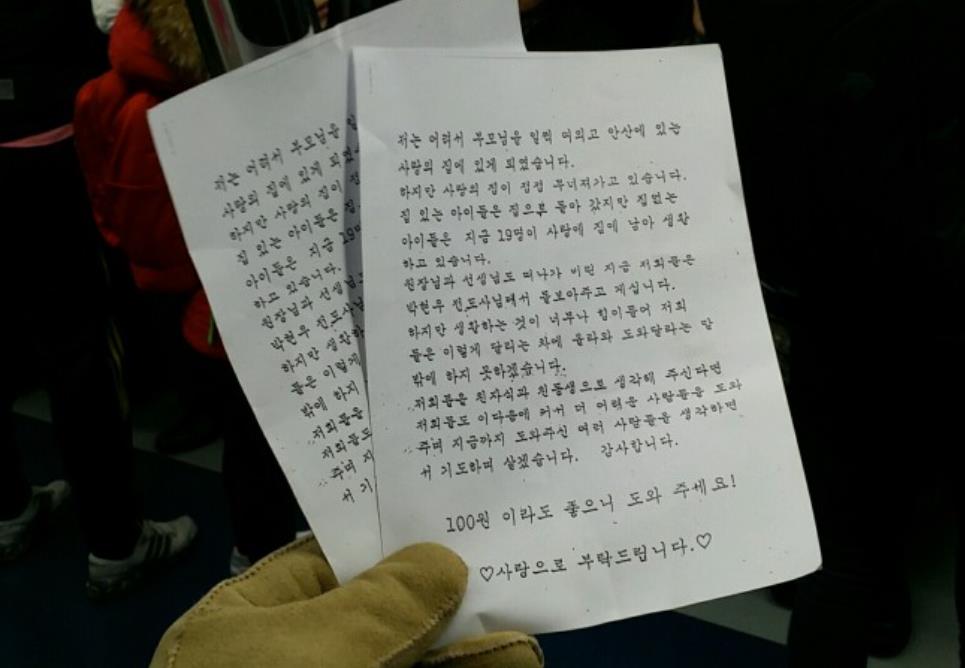 저는 어려서 부모님을 일찍 여의고 안산에 있는
사랑의 집에 있게 되었습니다.
하지만 사랑의 집이 점점 무너져가고 있습니다.
집 있는 아이들은 집으로 돌아 갔지만 집없는
아이들은 지금 19명이 사랑에 집에 남아 생활
하고 있습니다.
원장님과 선생님도 떠나가 버린 지금 저희들은
박현우 전도사님께서 돌보아주고 계십니다.
하지만 생활하는 것이 너무나 힘이들어 저희
들은 이렇게 달리는 차에 올라와 도와달라는 말
밖에 하지 못하겠습니다.
저희들을 친자식과 친동생으로 생각해 주신다면
저희들도 이다음에 커서 더 어려운 사람들을 도와
주며 지금까지 도와주신 여러 사람들을 생각하면
서 기도하며 살겠습니다. 감사합니다.
100원 이라도 좋으니 도와 주세요!
♡사랑으로 부탁드립니다.♡
저는 어려서 부모님을
사랑의 집에 있게
하지만 사랑의 집이
집 있는 아이들은
아이들은 지금 19명
하고 있습니다.
원장님과 선생님도
박현우 전도사님
하지만 생활
들은 이렇게
밖에 하지
저희들을
저희들도
주며 지
서 기